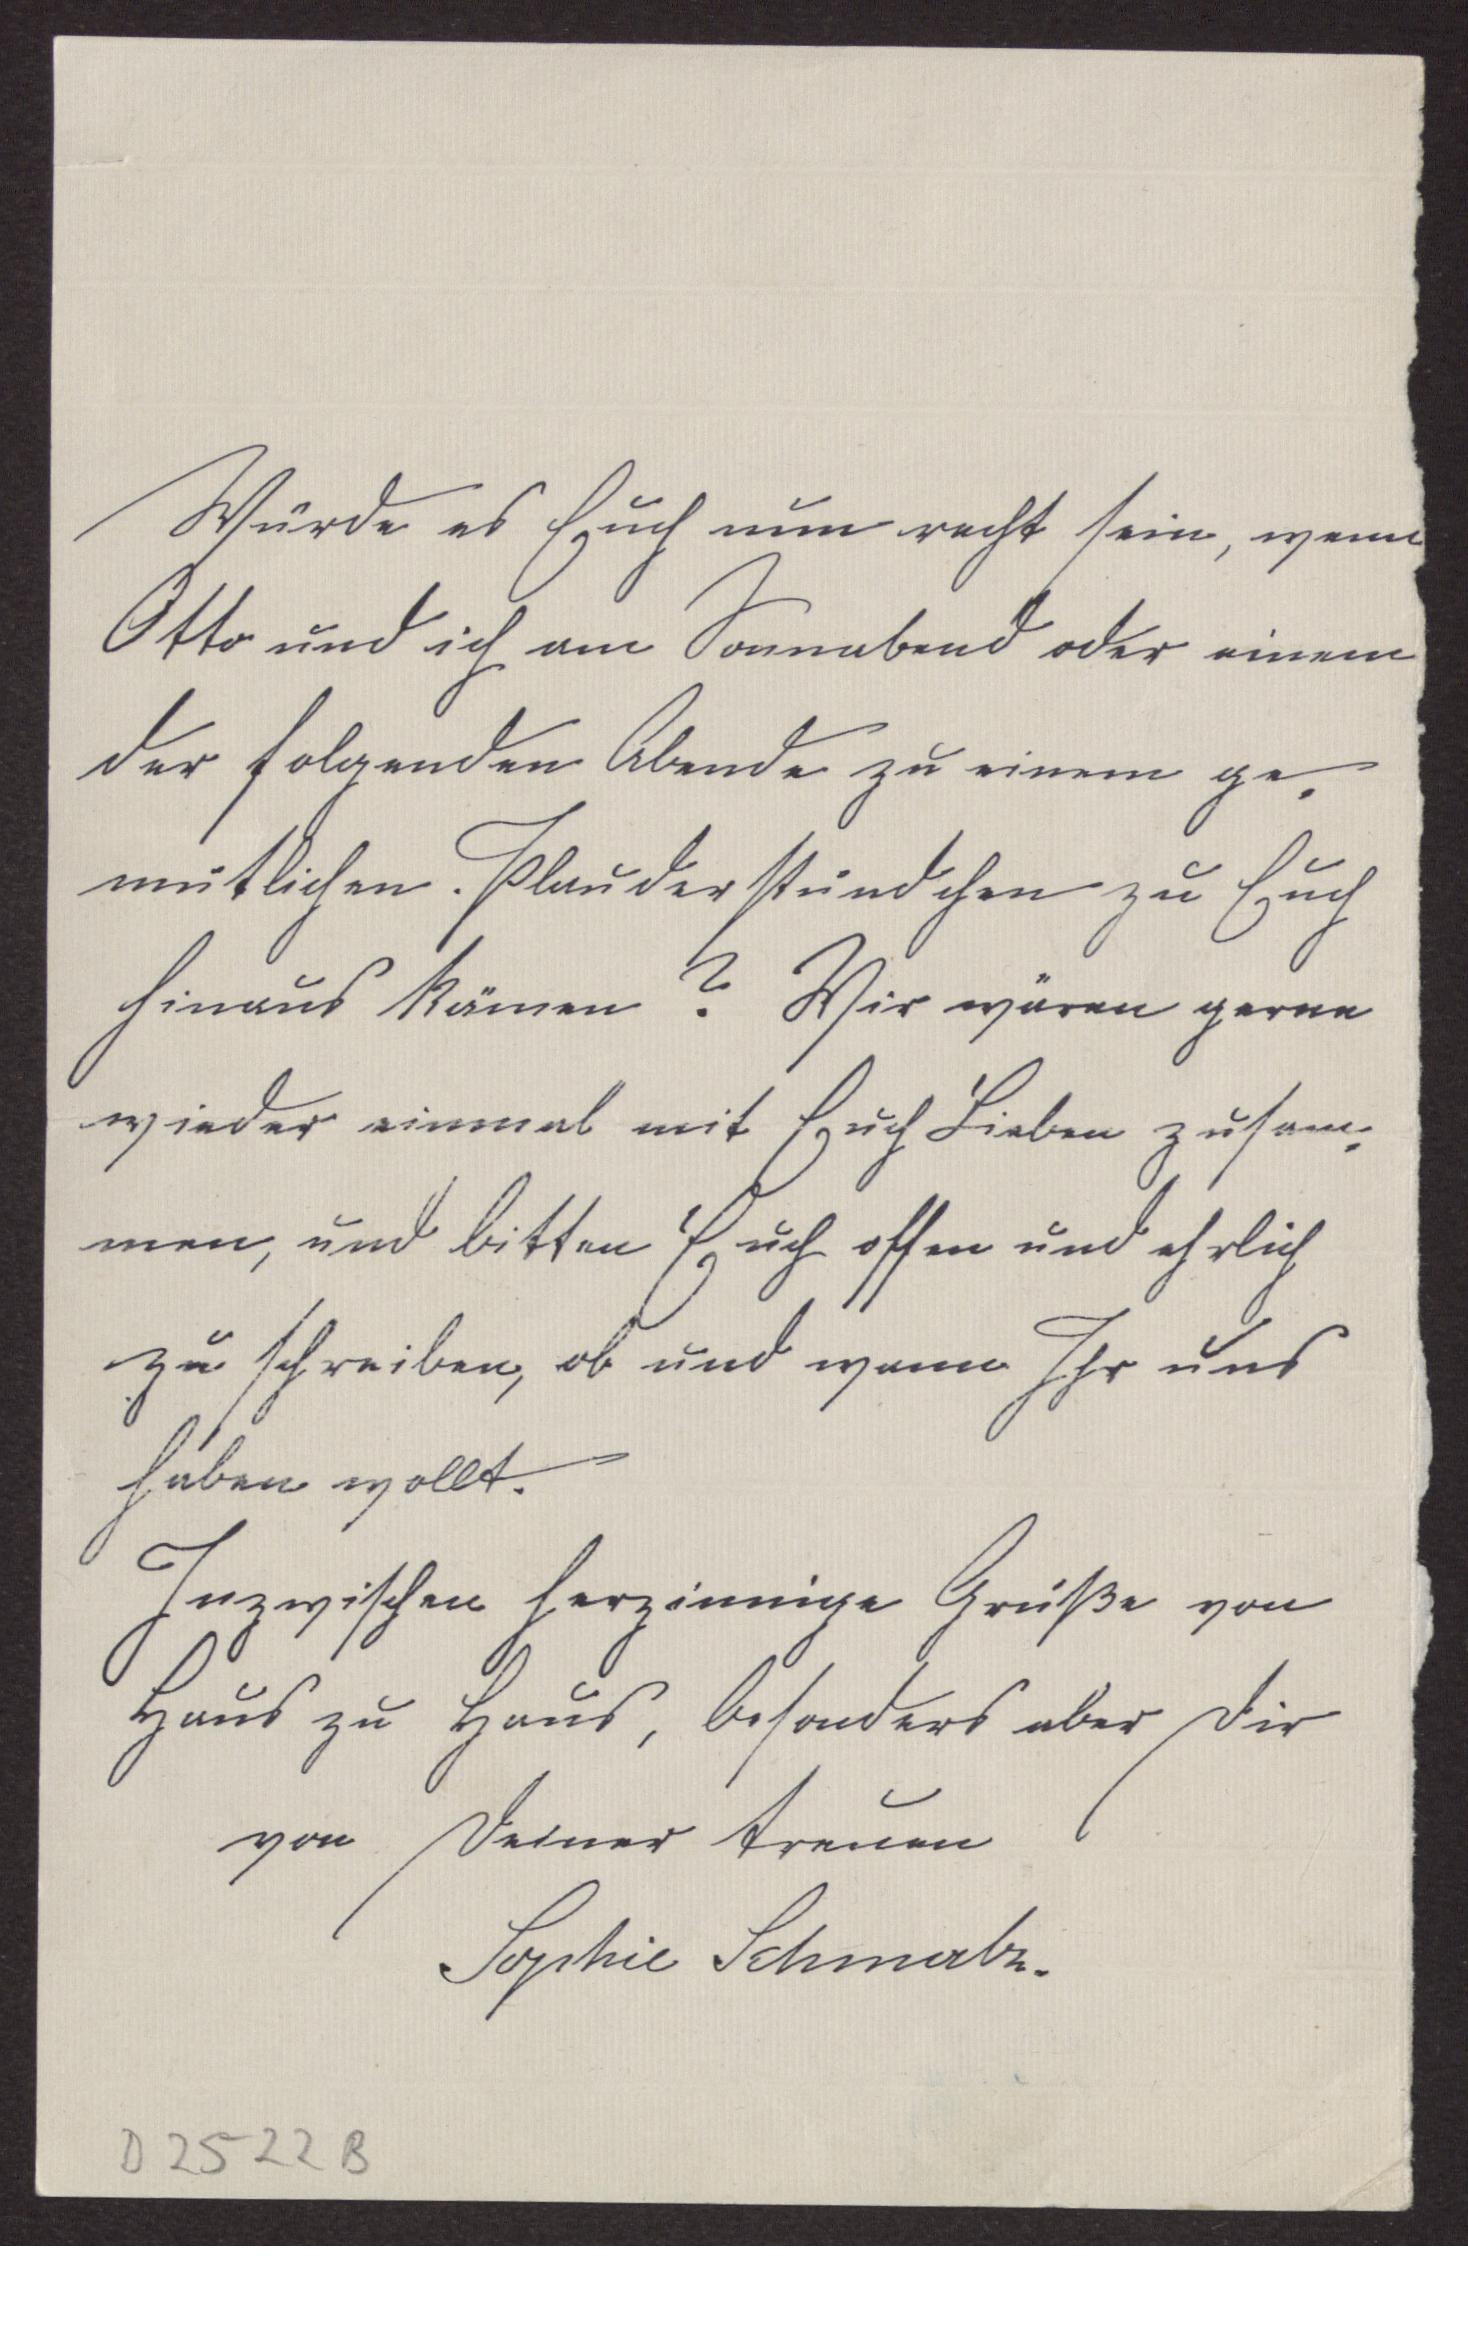 Würde es Euch nun recht sein, wenn
Otto und ich am Sonnabend oder einem
der folgenden Abende zu einem ge-
mütlichen Plauderstündchen zu Euch
hinaus kämen? Wir wären gerne
wieder einmal mit Euch Lieben zusam-
men, und bitten Euch offen und ehrlich
zu schreiben, ob und wann Ihr uns
haben wollt.
Inzwischen herzinnige Grüße von
Haus zu Haus, besonders aber Dir
von Deiner treuen
Sophie
D 2522 B